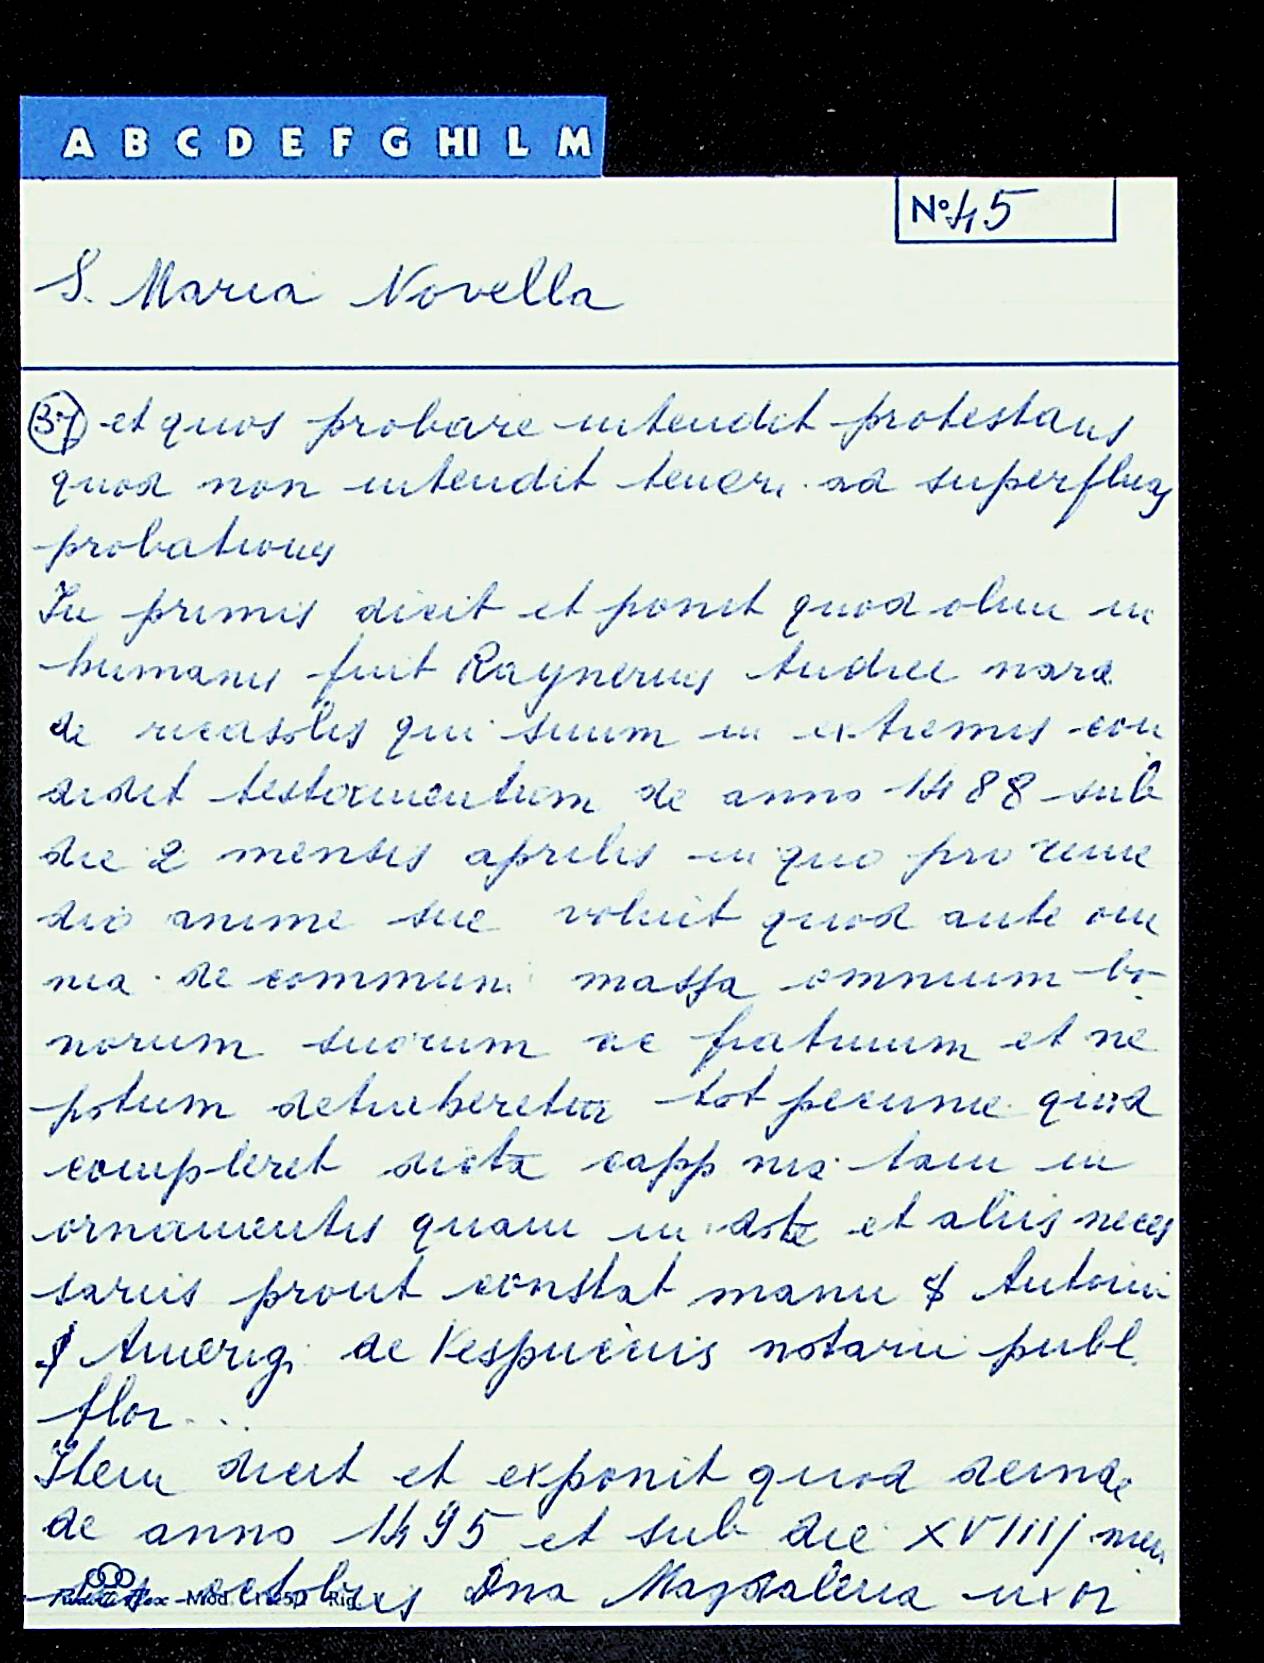 A B C D E F G HI L M
Nº 45
S. Maria Novella
37 et quos probare intendit protestans
quod non intendit teneri ad superfluas
probationes
In primis dicit et ponit quod olim in
humanis fuit Raynerius Andree nara
de ricasolis qui suum in extremis con
didit testamentum de anno 1488 sub
die 2 mensis aprilis in quo pro reme
dio anime sue voluit quod ante om
nia de communi massa omnium bo
norum suorum ac fratruum et ne
potum detraheretur tot pecunie quod
compleret dicta capp na tam in
ornamentis quam in dote et aliis neces
sariis prout constat manu S Antonii
S Amerigi de Vespuciis notarii publ.
flor...
Item dicit et exponit quod deinde
de anno 1495 et sub die XVIIII men
octobris Dna Magdalena uxor
Mod. Rig.